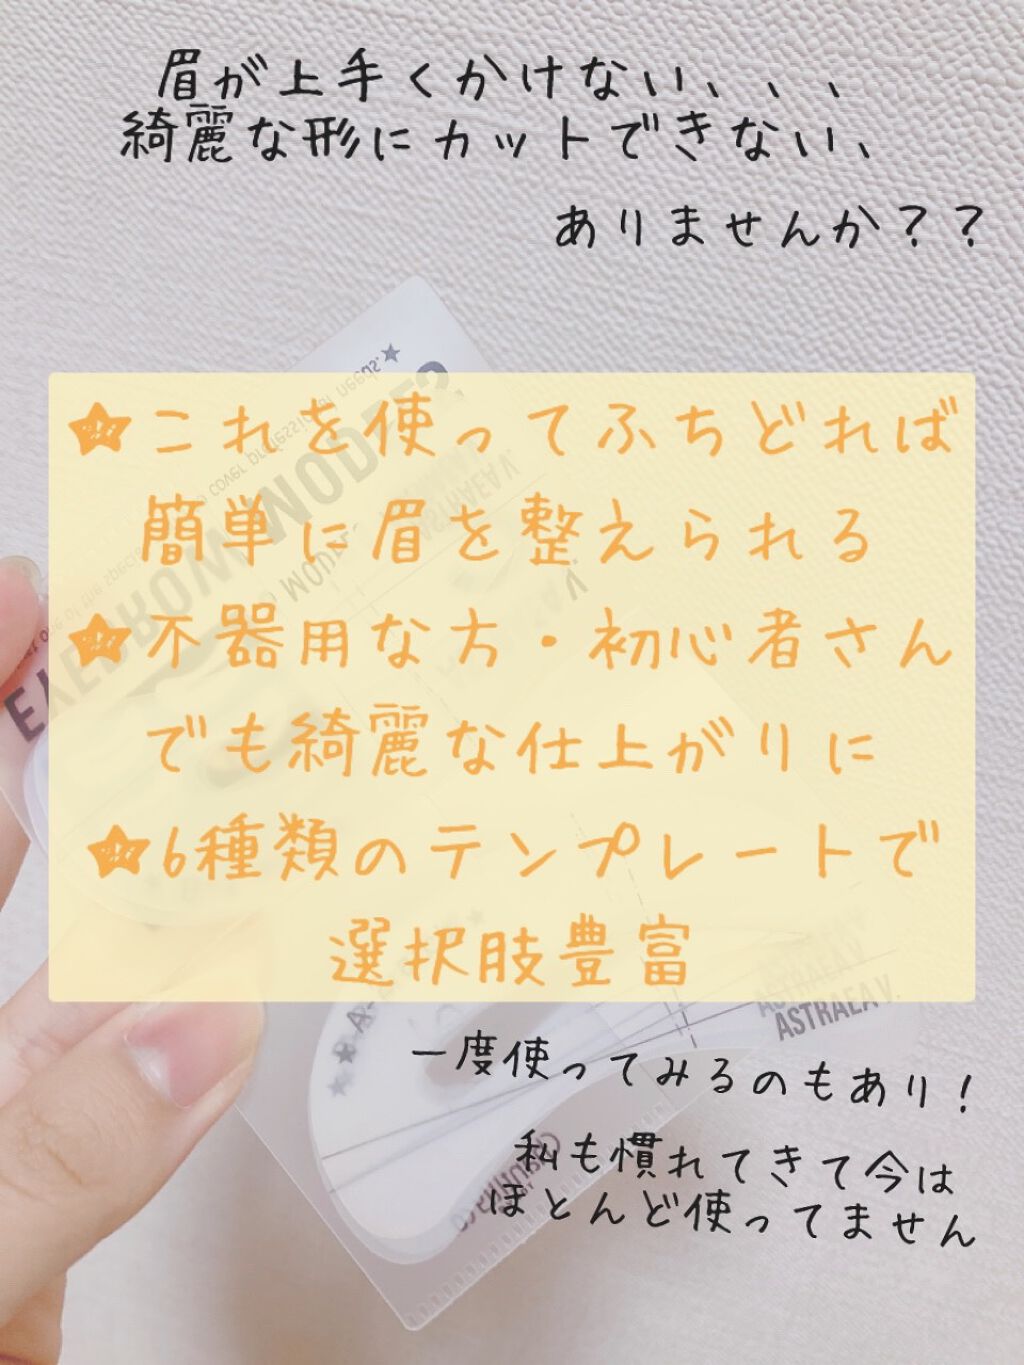 眉が上手くかけない、、、
綺麗な形にカットできない、
ありませんか？？
★これを使ってふちどれば
簡単に眉を整えられる
★不器用な方・初心者さん
でも綺麗な仕上がりに
★6種類のテンプレートで
選択肢豊富
ASTRAEA V.
ASTRAEA V.
一度使ってみるのもあり！
私も慣れてきて今は
ほとんど使ってません